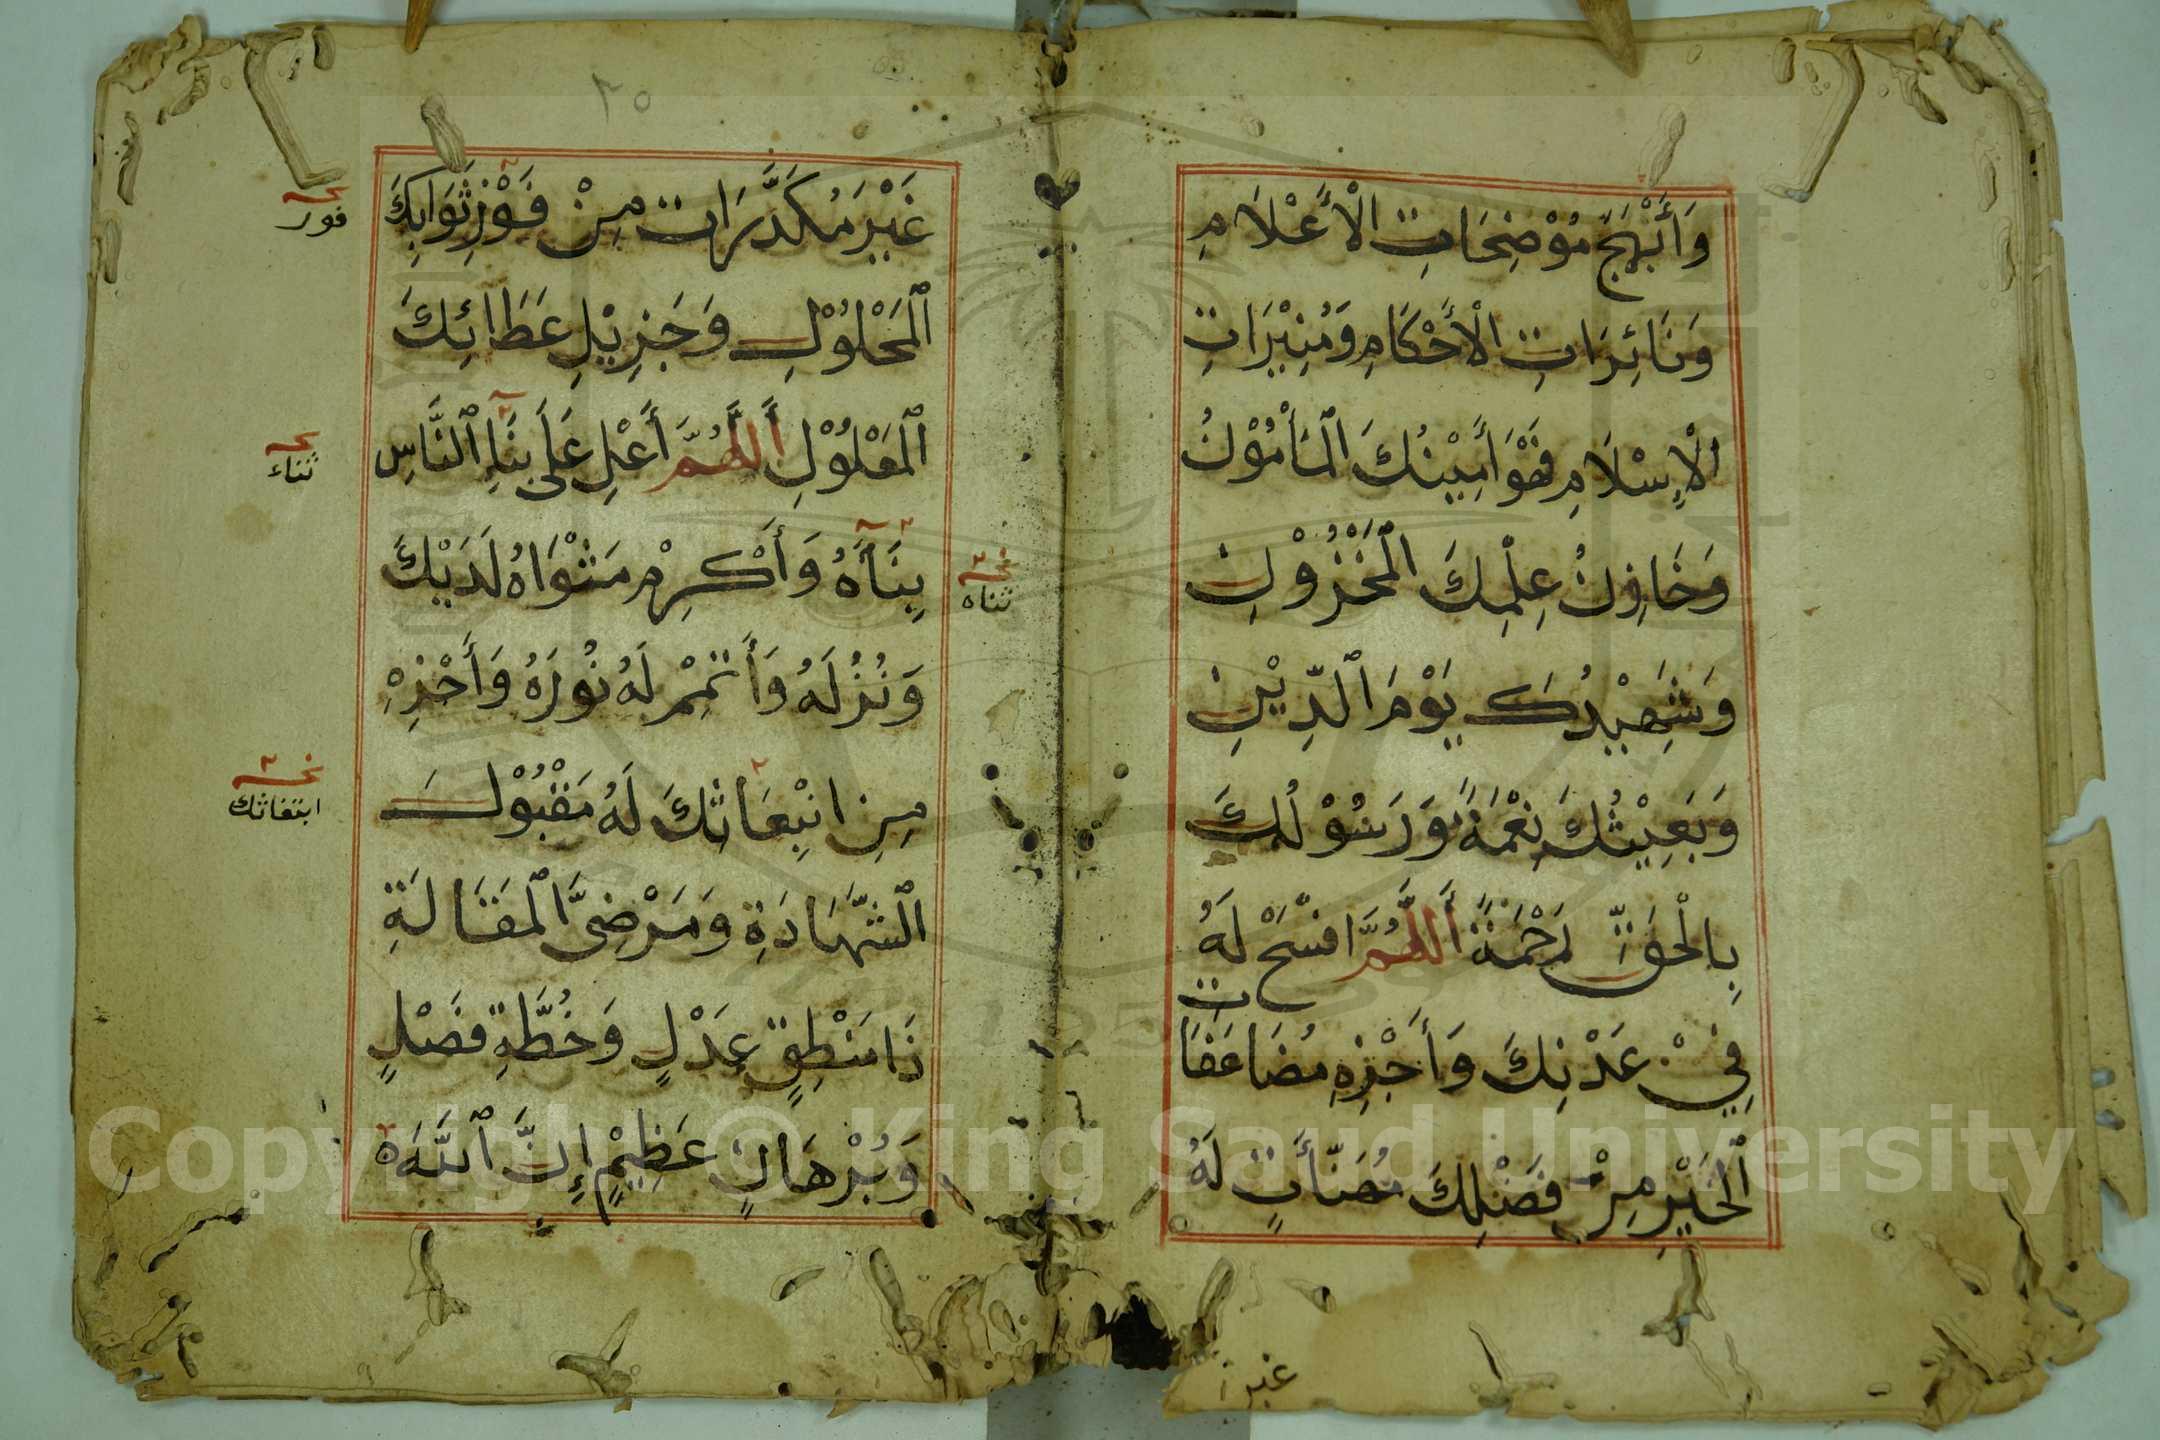 وَأَنْهَجَ مُوْضِحَاتِ الْأَعْلَامِ
وَنَائِرَاتِ الْأَحْكَامِ وَمُنِيْرَاتِ
الْإِسْلَامِ فَهْوَ أَمِيْنُكَ الْمَأْمُوْنُ
وَخَازِنُ عِلْمِكَ الْمَخْزُوْنِ
وَشَهِيْدُكَ يَوْمَ الدِّيْنِ
وَبَعِيْثُكَ نِعْمَةً وَرَسُوْلُكَ
بِالْحَقِّ رَحْمَةً أَللَّهُمَّ افْسَحْ لَهُ
فِيْ عَدْنِكَ وَأَجْزِهِ مُضَاعَفَاتِ
الْخَيْرِ مِنْ فَضْلِكَ مُهَنَّأَتٍ لَهُ
غير
٢٥
غَيْرَ مُكَدَّرَاتٍ مِنْ فَوْزِ ثَوَابِكَ
الْمَحْلُوْلِ وَجَزِيْلِ عَطَائِكَ
الْمَعْلُوْلِ أَللَّهُمَّ أَعْلِ عَلَى بِنَاءِ النَّاسِ
بِنَآءَهُ وَأَكْرِمْ مَثْوَاهُ لَدَيْكَ
وَنُزُلَهُ وَأَتْمِمْ لَهُ نُورَهُ وَأَجْزِهِ
مِنِ انْبِعَاثِكَ لَهُ مَقْبُوْلَ
الشَّهَادَةِ وَمَرْضِىَّ الْمَقَالَةِ
ذَا مَنْطِقٍ عَدْلٍ وَخُطَّةٍ فَصْلٍ
وَبُرْهَانٍ عَظِيْمٍ إِنَّ اللَّهَ
نخـ
فور
نخـ
ثناء
نخـ
ثناه
نخـ
ابتغاثك
Copyright © King Saud University
1957